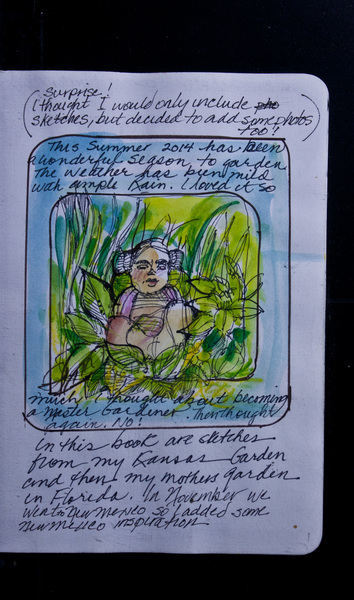 Surprise!
(I thought I would only include pho
sketches, but decided to add some photos
too!)
This Summer 2014 has been
a wonderful season to garden.
The weather has been mild
with ample rain. I loved it so
much I thought about becoming
a master Gardener. Then thought
again. No!
In this book are sketches
from my Kansas Garden
and then my mothers garden
in Florida. In November we
went to New Mexico so I added some
New Mexico inspiration